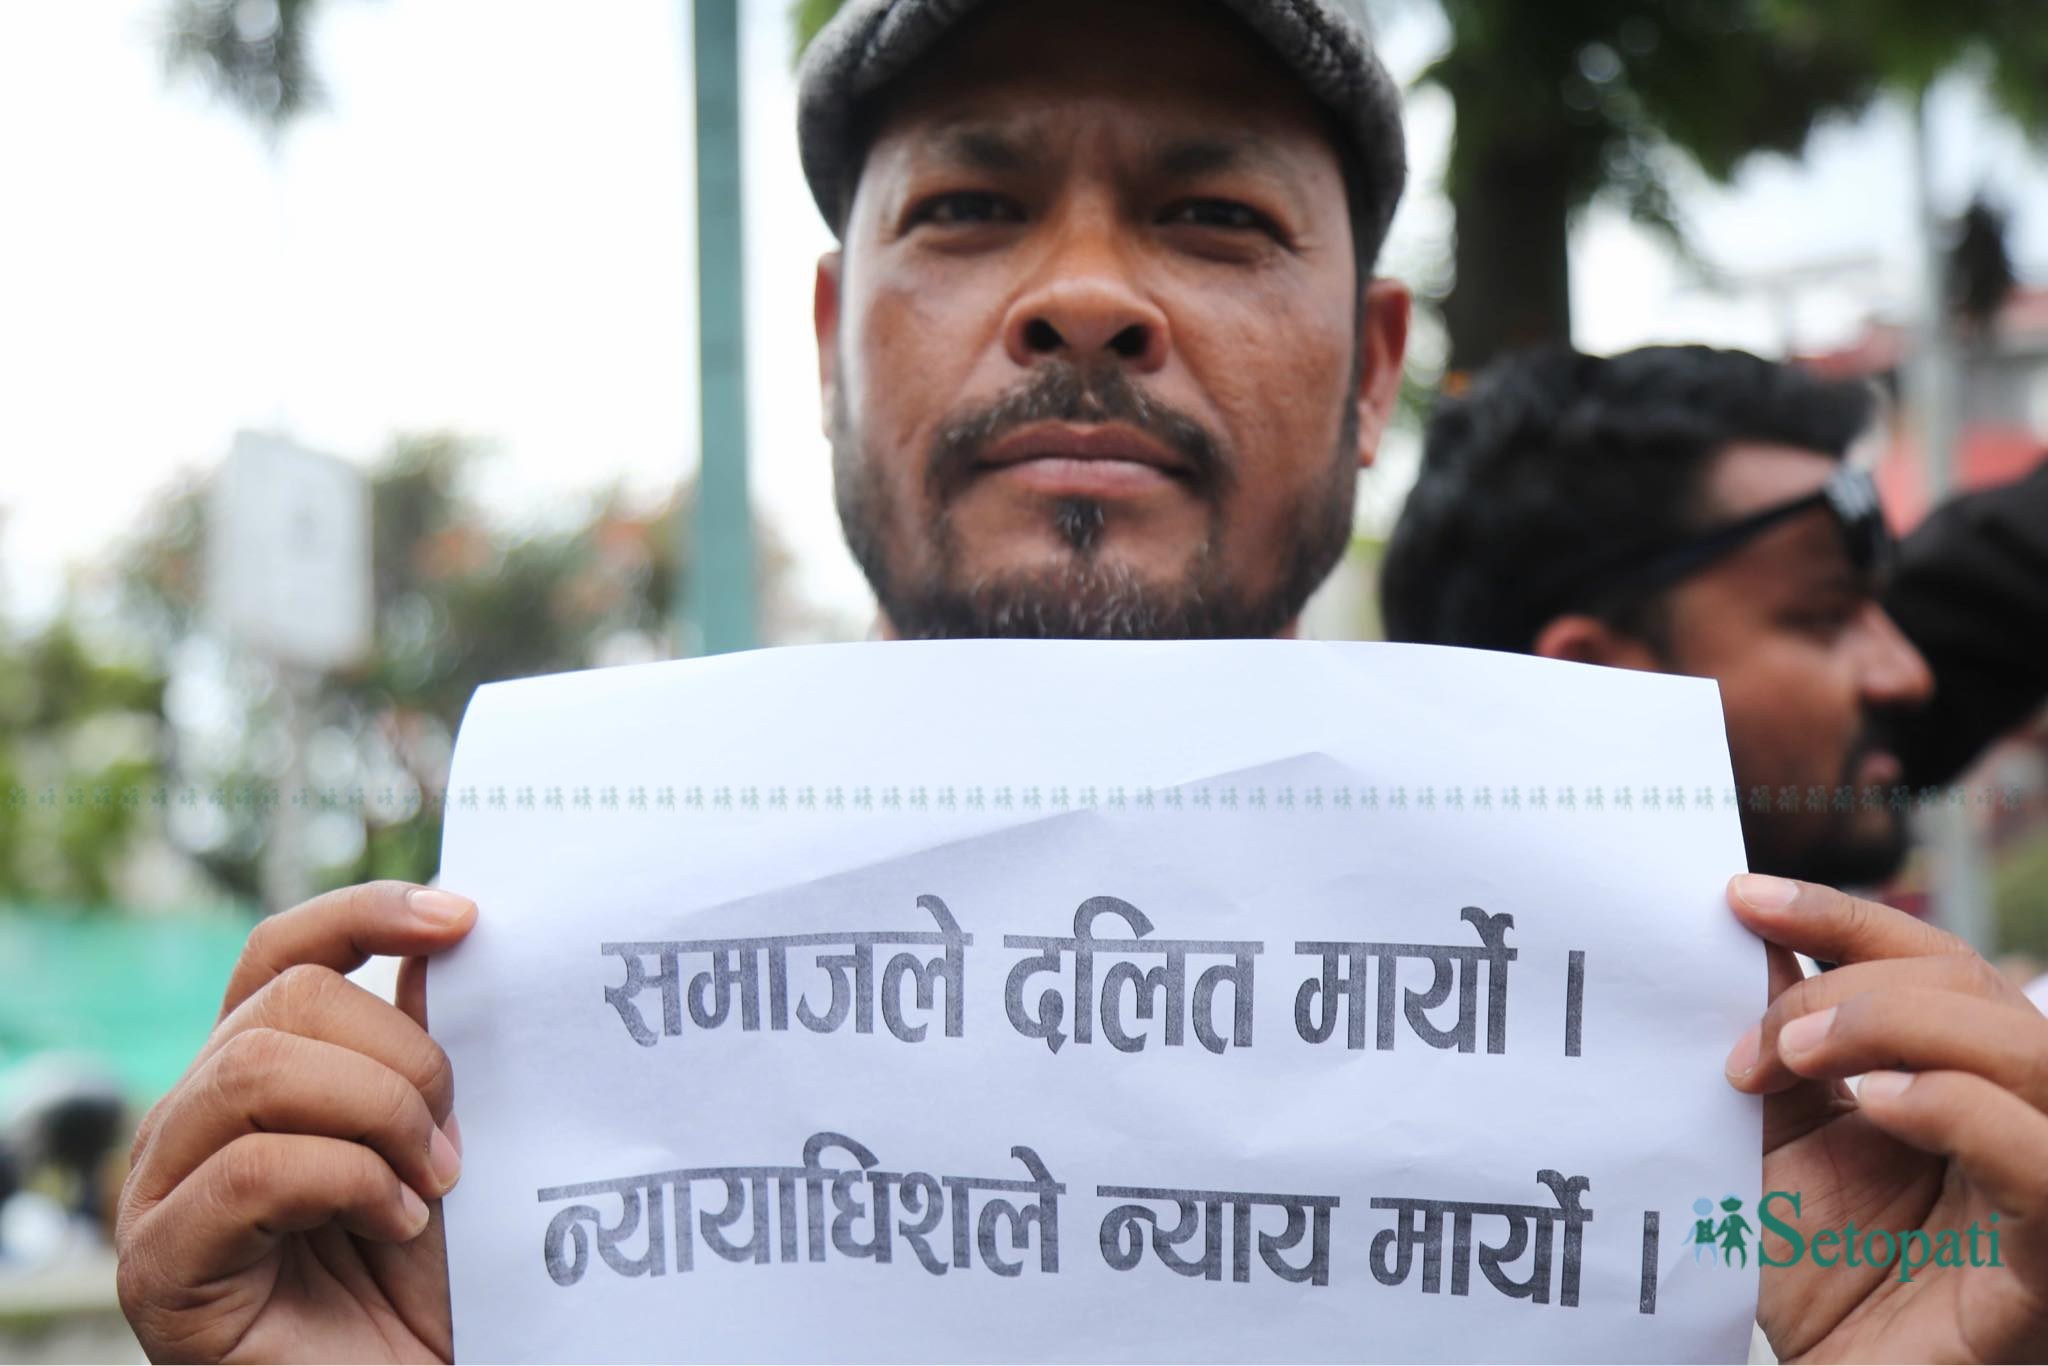 समाजले दलित मार्यो ।
न्यायाधिशले न्याय मार्यो ।
Setopati